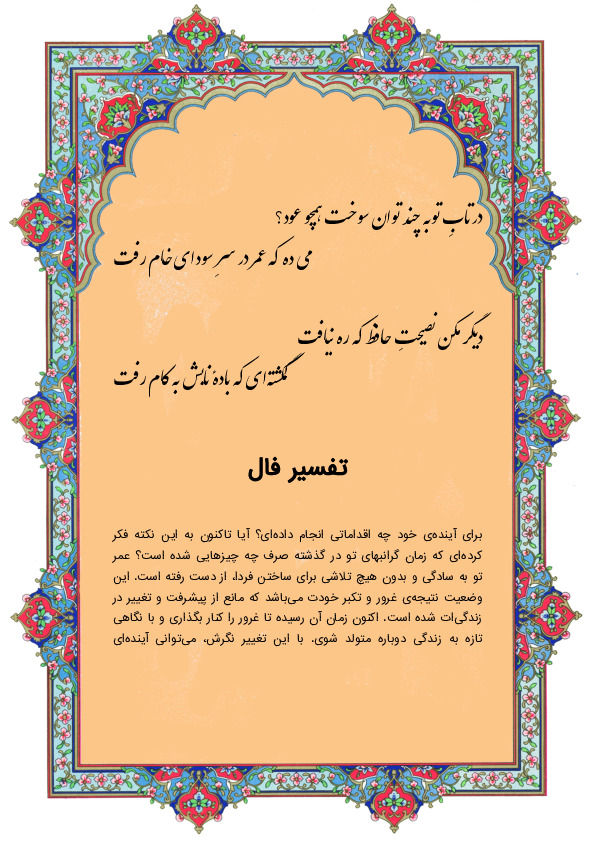 در تابِ توبه چند توان سوخت همچو عود؟
می ده که عمر در سرِ سودای خام رفت
دیگر مکن نصیحتِ حافظ که ره نیافت
گمگشته‌ای که بادهٔ نابش به کام رفت
تفسیر فال
برای آینده‌ی خود چه اقداماتی انجام داده‌ای؟ آیا تاکنون به این نکته فکر
کرده‌ای که زمان گرانبهای تو در گذشته صرف چه چیزهایی شده است؟ عمر
تو به سادگی و بدون هیچ تلاشی برای ساختن فردا، از دست رفته است. این
وضعیت نتیجه‌ی غرور و تکبر خودت می‌باشد که مانع از پیشرفت و تغییر در
زندگی‌ات شده است. اکنون زمان آن رسیده تا غرور را کنار بگذاری و با نگاهی
تازه به زندگی دوباره متولد شوی. با این تغییر نگرش، می‌توانی آینده‌ای